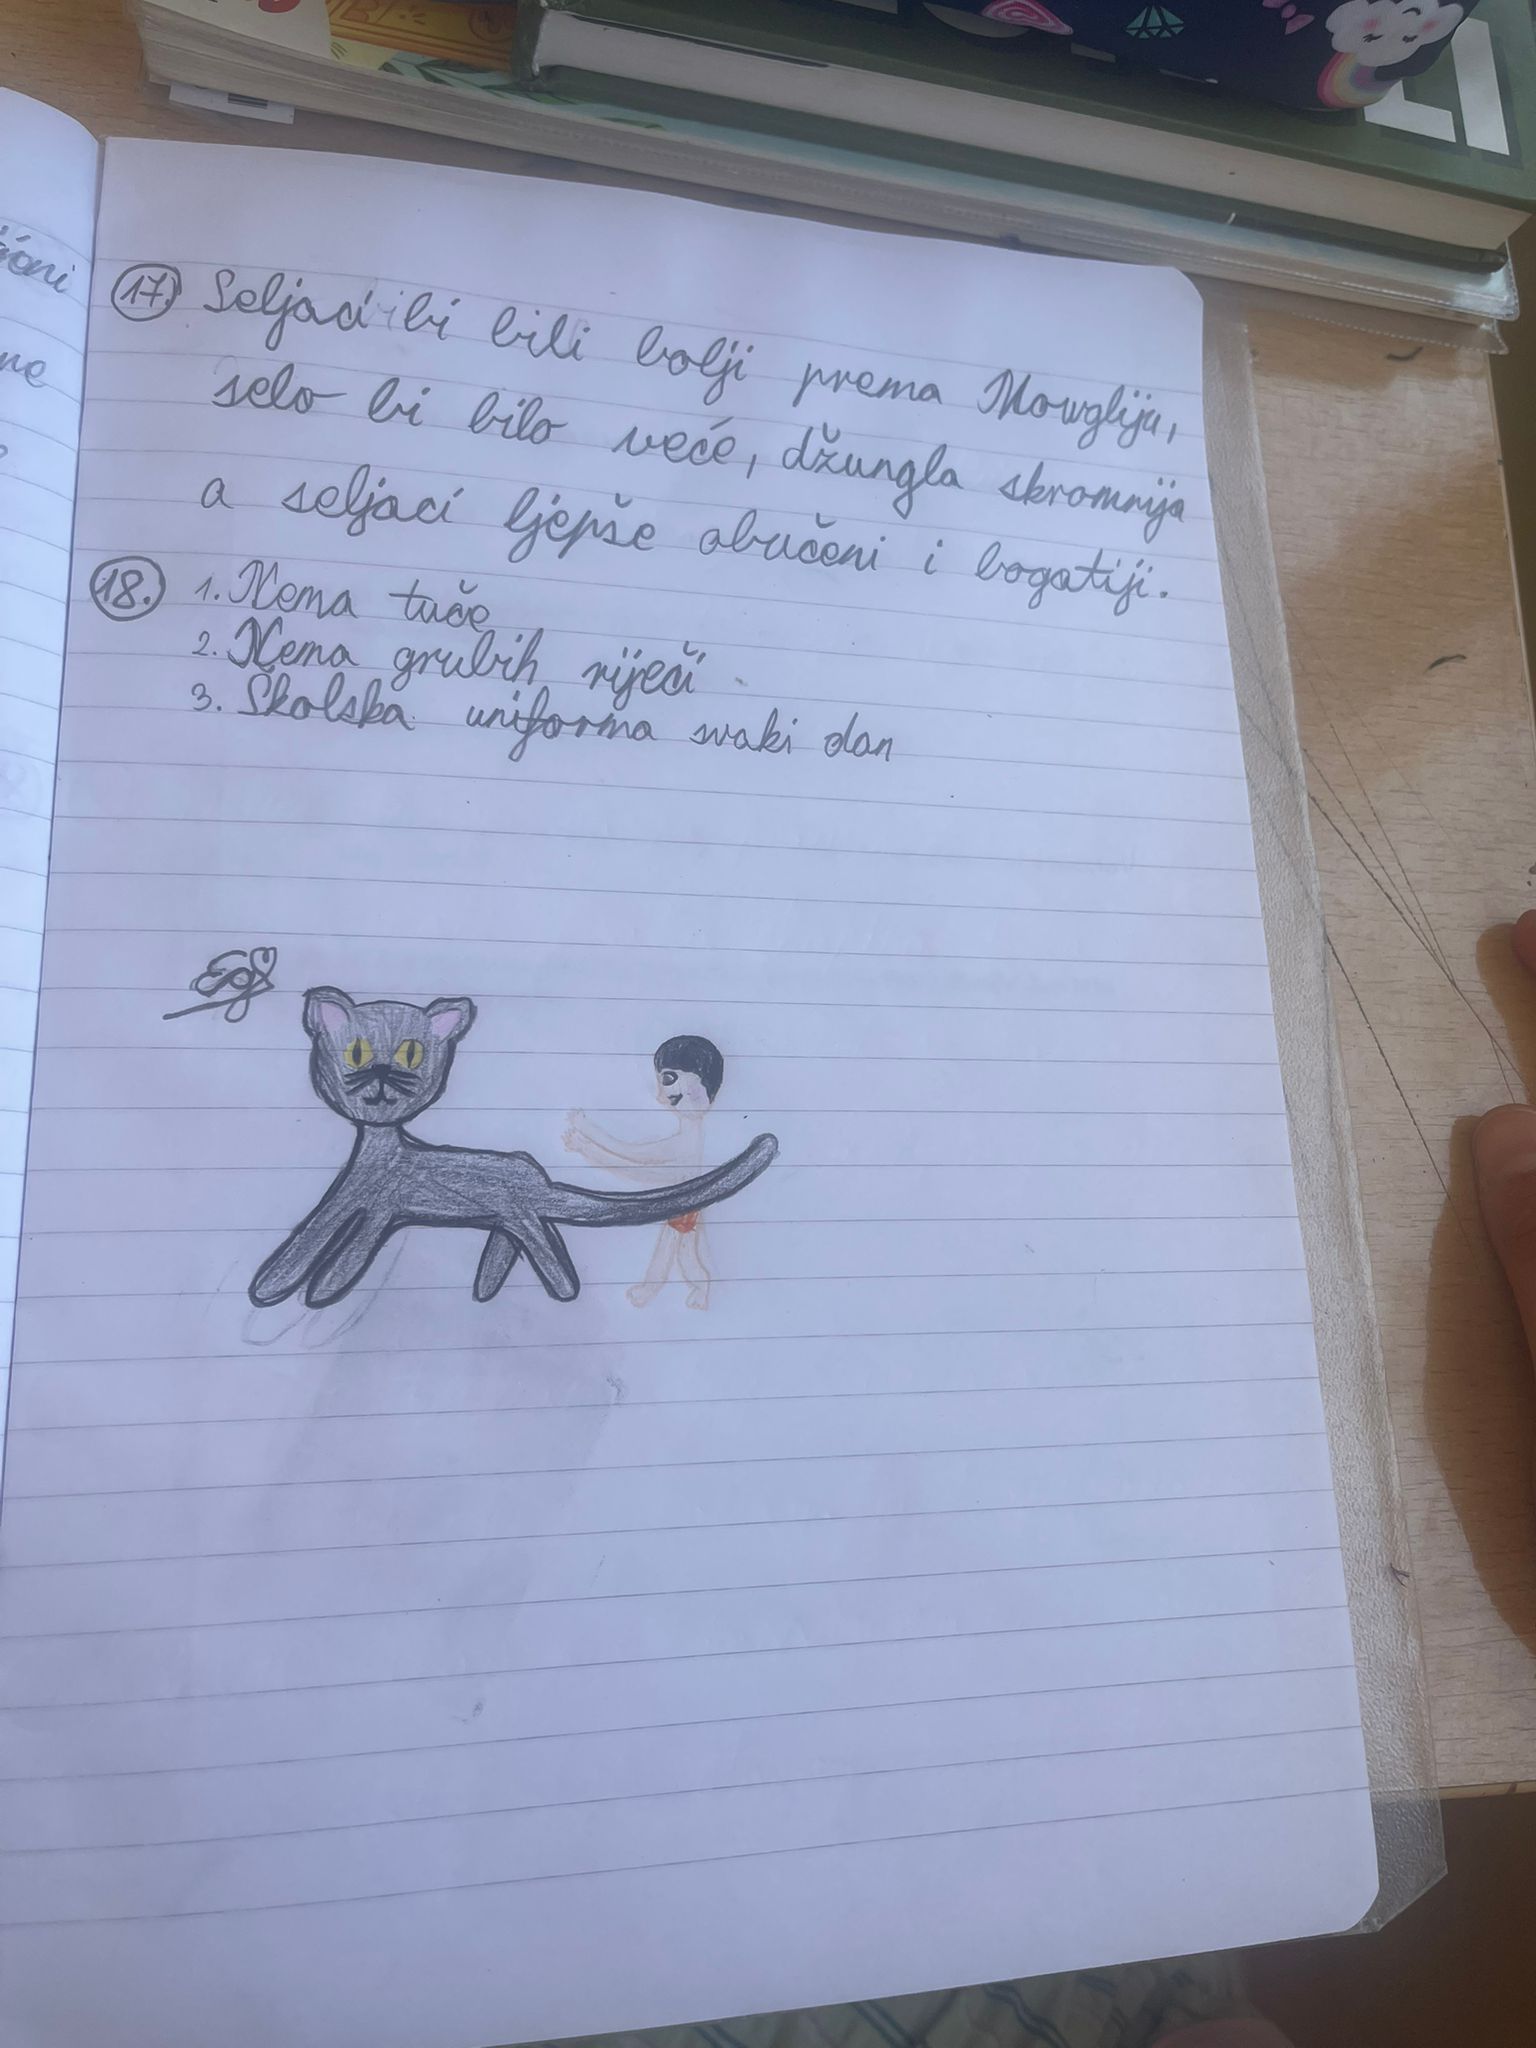 17. Seljaci bi bili bolji prema Mowgliju,
selo bi bilo veće, džungla skromnija
a seljaci ljepše obučeni i bogatiji.
18. 1. Nema tuče
2. Nema grubih riječi
3. Školska uniforma svaki dan